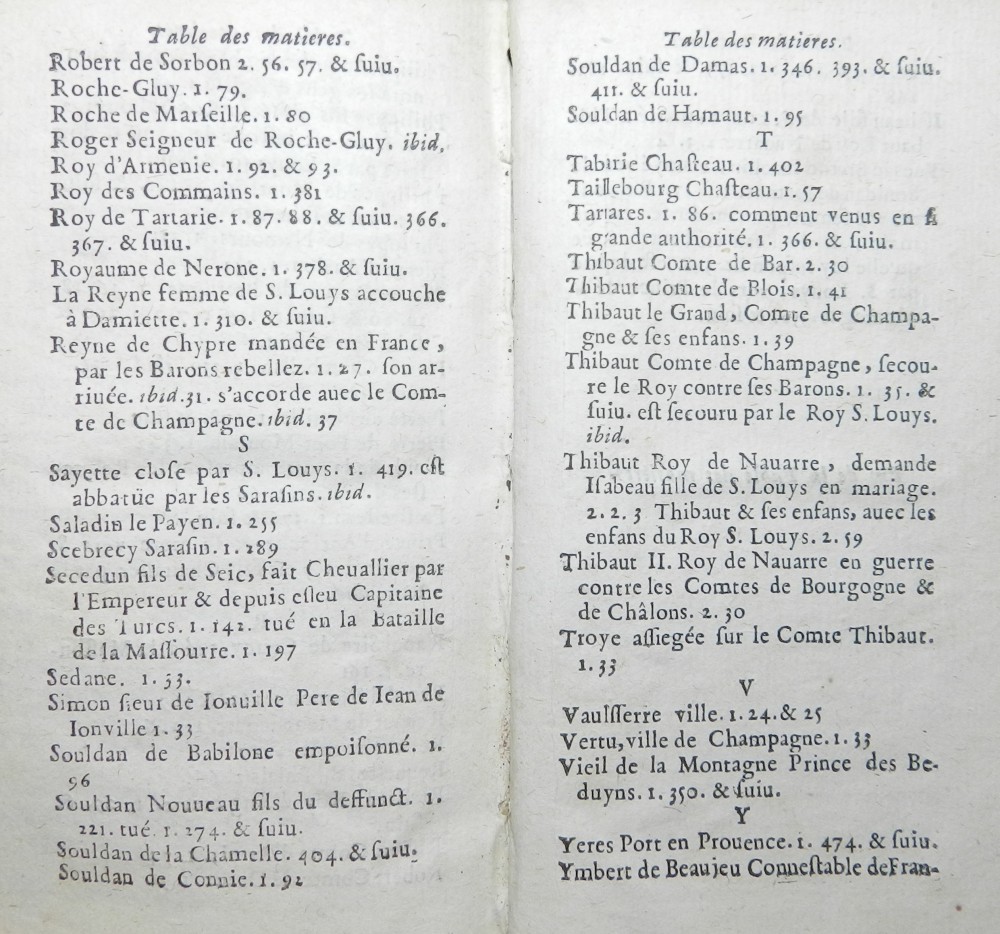 Table des matieres.
Robert de Sorbon 2. 56. 57. & ſuiu.
Roche-Gluy. 1. 79.
Roche de Marſeille. 1. 80
Roger Seigneur de Roche-Gluy. ibid.
Roy d'Armenie. 1. 92. & 93.
Roy des Commains. 1. 381
Roy de Tartarie. 1. 87. 88. & ſuiu. 366.
367. & ſuiu.
Royaume de Nerone. 1. 378. & ſuiu.
La Reyne femme de S. Louys accouche
à Damiette. 1. 310. & ſuiu.
Reyne de Chypre mandée en France,
par les Barons rebellez. 1. 27. ſon ar-
riuée. ibid. 31. s'accorde auec le Com-
te de Champagne. ibid. 37
S
Sayette cloſe par S. Louys. 1. 419. eſt
abbatüe par les Saraſins. ibid.
Saladin le Payen. 1. 255
Scebrecy Saraſin. 1. 289
Secedun fils de Seic, fait Cheuallier par
l'Empereur & depuis eſleu Capitaine
des Turcs. 1. 142. tué en la Bataille
de la Maſſourre. 1. 197
Sedane. 1. 53.
Simon ſieur de Ionuille Pere de Iean de
Ionville 1. 33
Souldan de Babilone empoiſonné. 1.
96
Souldan Nouueau fils du deffunct. 1.
221. tué. 1. 274. & ſuiu.
Souldan de la Chamelle. 404. & ſuiu.
Souldan de Connie. 1. 92
Table des matieres.
Souldan de Damas. 1. 346. 393. & ſuiu.
411. & ſuiu.
Souldan de Hamaut. 1. 95
T
Tabirie Chaſteau. 1. 402
Taillebourg Chaſteau. 1. 57
Tartares. 1. 86. comment venus en ſi
grande authorité. 1. 366. & ſuiu.
Thibaut Comte de Bar. 2. 30
Thibaut Comte de Blois. 1. 41
Thibaut le Grand, Comte de Champa-
gne & ſes enfans. 1. 39
Thibaut Comte de Champagne, ſecou-
re le Roy contre ſes Barons. 1. 35. &
ſuiu. eſt ſecouru par le Roy S. Louys.
ibid.
Thibaut Roy de Nauarre, demande
Iſabeau fille de S. Louys en mariage.
2. 2. 3 Thibaut & ſes enfans, auec les
enfans du Roy S. Louys. 2. 59
Thibaut II. Roy de Nauarre en guerre
contre les Comtes de Bourgogne &
de Châlons. 2. 30
Troye aſſiegée ſur le Comte Thibaut.
1. 33
V
Vaulſſerre ville. 1. 24. & 25
Vertu, ville de Champagne. 1. 33
Vieil de la Montagne Prince des Be-
duyns. 1. 350. & ſuiu.
Y
Yeres Port en Prouence. 1. 474. & ſuiu.
Ymbert de Beaujeu Conneſtable de Fran-